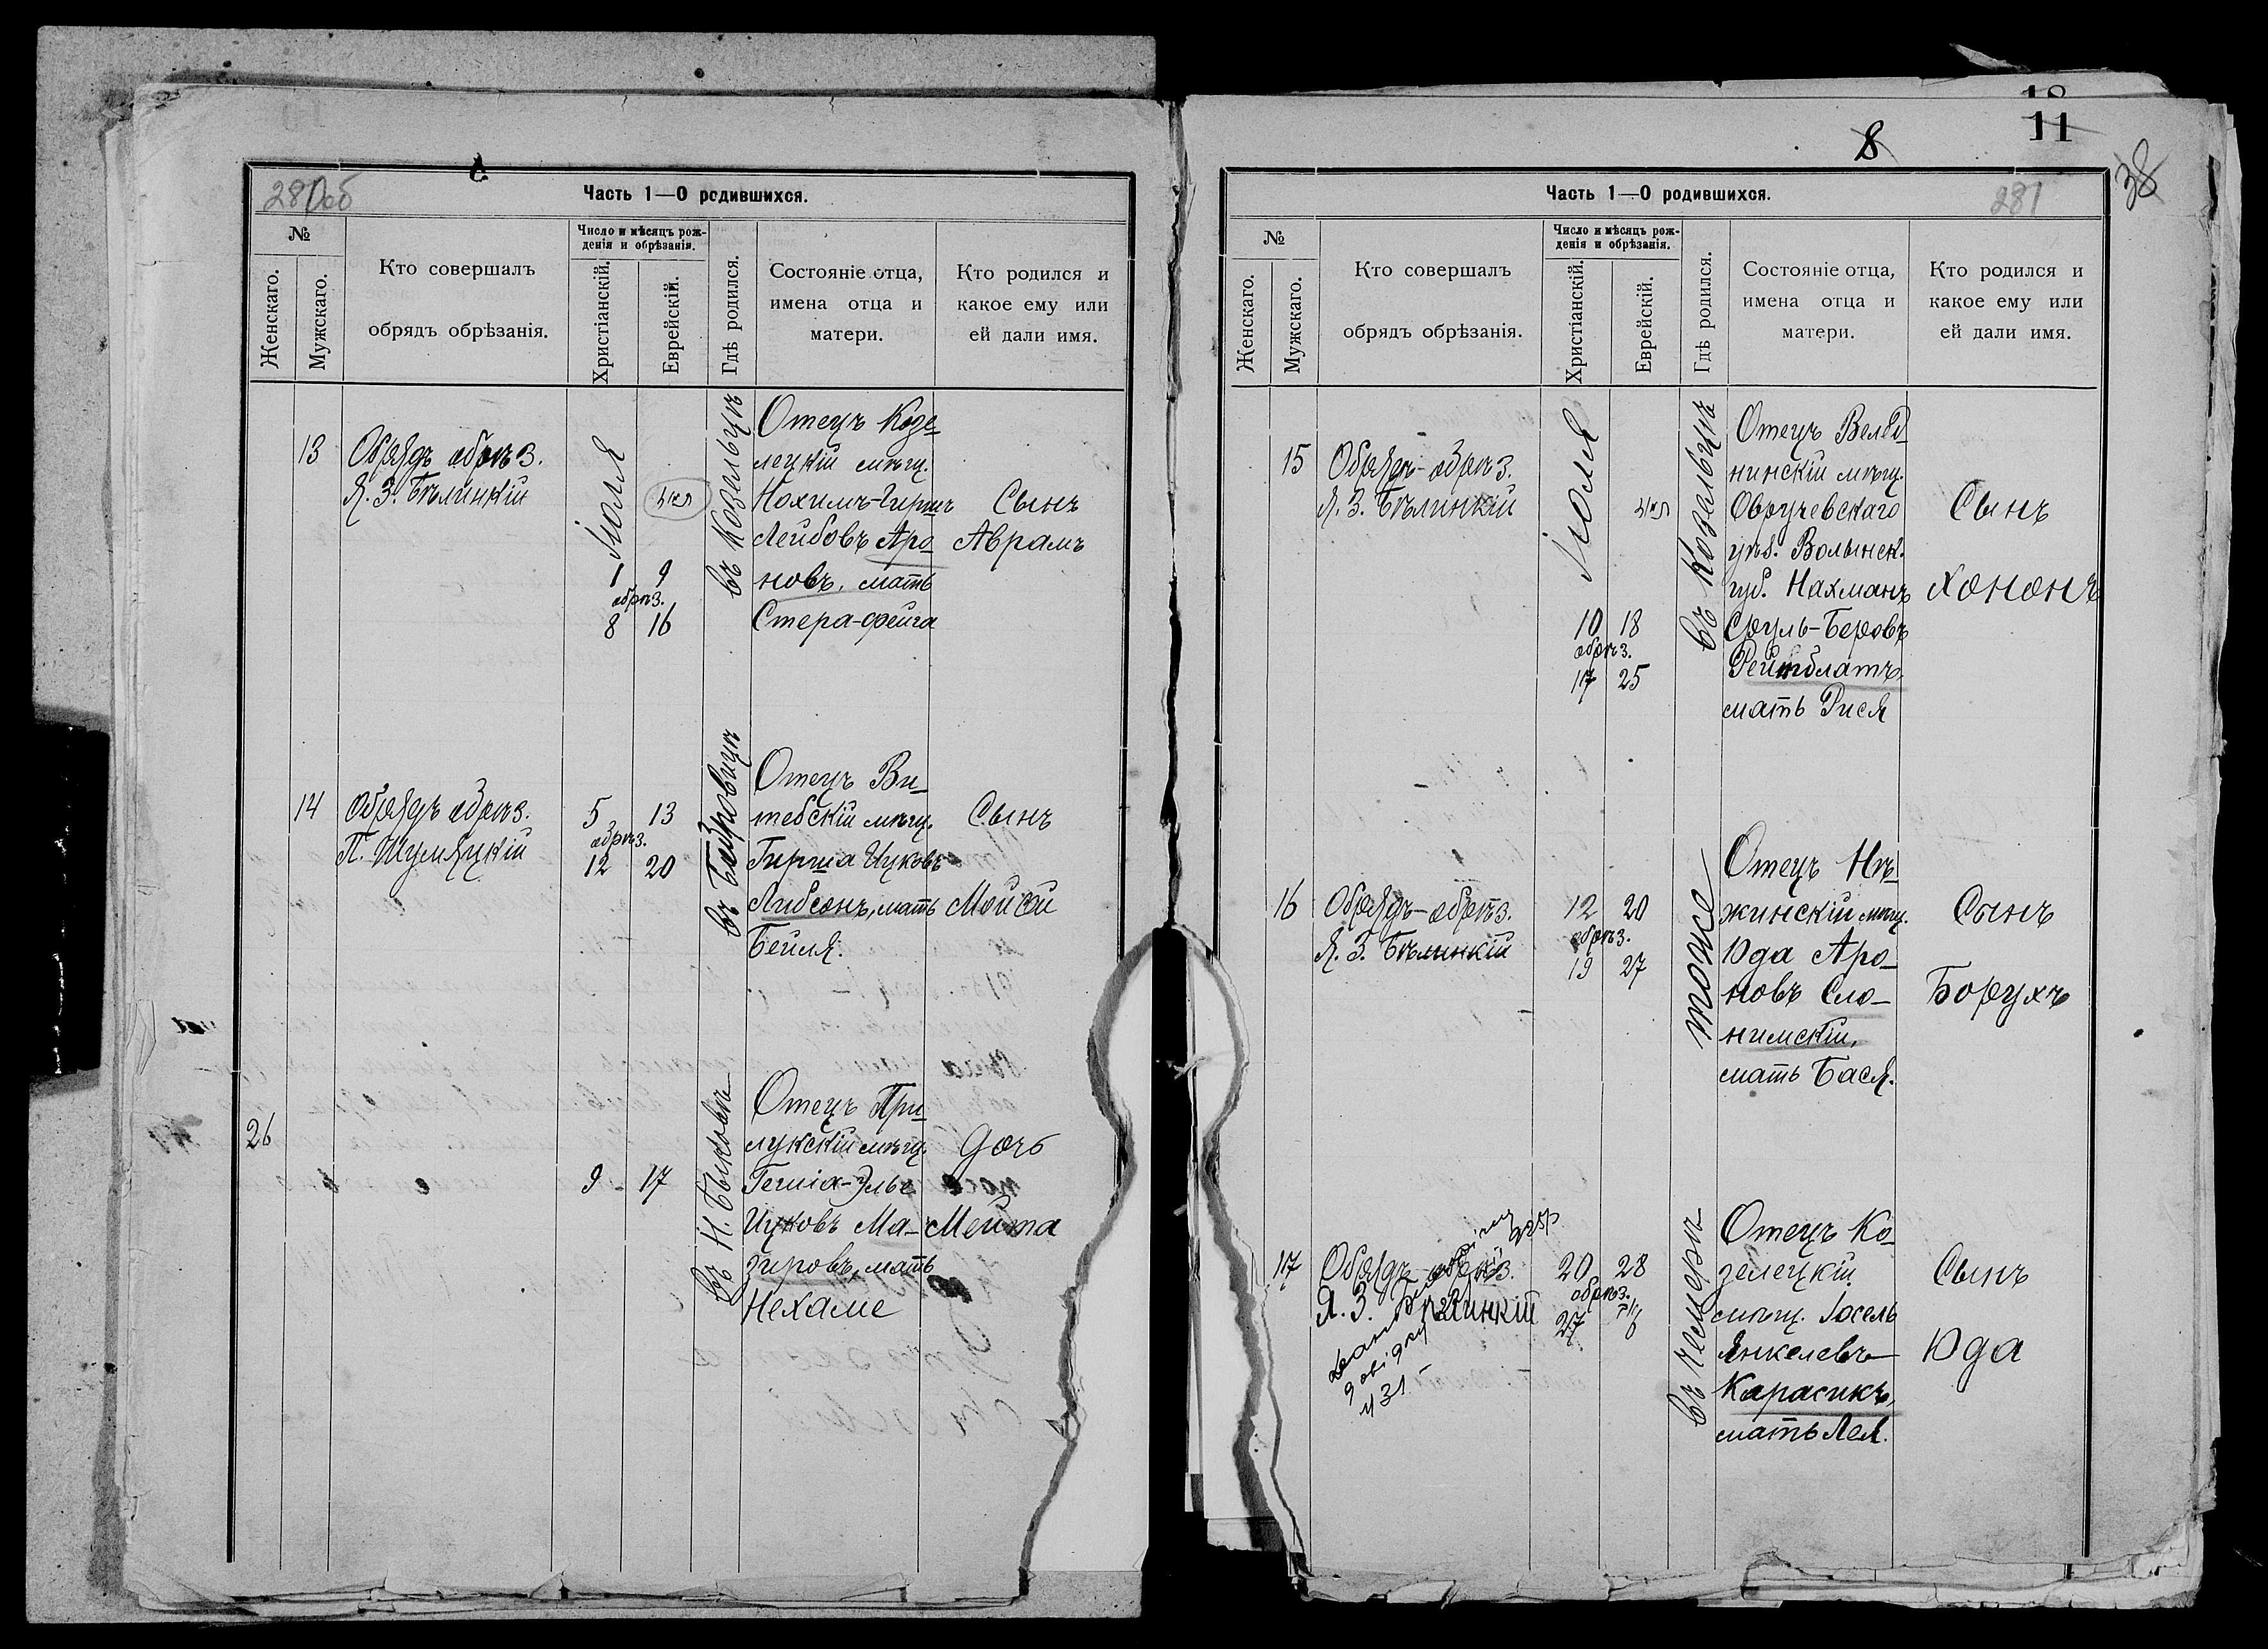 280об
Часть 1—О родившихся.
№
Женскаго.
Мужскаго.
Кто совершалъ
обрядъ обрѣзанія.
Число и мѣсяцъ рож-
денія и обрѣзанія.
Христіанскій.
Еврейскій.
Гдѣ родился.
Состояніе отца,
имена отца и
матери.
Кто родился и
какое ему или
ей дали имя.
13
Обрядъ обрѣз.
Я. З. Бѣлинкій
Іюля
1 9
обрѣз.
8 16
въ Козельцѣ
Отецъ Козе-
лецкій мѣщ.
Нохимъ-Гиршъ
Лейбовъ Аро-
новъ, мать
Стера-фейга
Сынъ
Аврамъ
14
Обрядъ обрѣз.
П. Шумяцкій
5 13
обрѣз.
12 20
въ Бобровицѣ
Отецъ Ви-
тебскій мѣщ.
Гирша Ицковъ
Либсонъ, мать
Бейля.
Сынъ
Мойсей
26
9 - 17
въ Н. Быковѣ
Отецъ При-
лукскій мѣщ.
Гешіа-Элье
Ицковъ Ма-
зировъ, мать
Нехаме
Дочь
Мейта
8
11
38
Часть 1—О родившихся.
281
№
Женскаго.
Мужскаго.
Кто совершалъ
обрядъ обрѣзанія.
Число и мѣсяцъ рож-
денія и обрѣзанія.
Христіанскій.
Еврейскій.
Гдѣ родился.
Состояніе отца,
имена отца и
матери.
Кто родился и
какое ему или
ей дали имя.
15
Обрядъ-обрѣз.
Я. З. Бѣлинкій
Іюля
10 18
обрѣз.
17 25
въ Козельцѣ
Отецъ Веледн-
нинскій мѣщ.
Овручевскаго
уѣз. Волынск.
губ. Нахманъ
Сруль-Беровъ
Рейтблатъ
мать Рися
Сынъ
Хононъ
16
Обрядъ-обрѣз.
Я. З. Бѣлинкій
12 20
обрѣз.
19 27
тоже
Отецъ Нѣ-
жинскій мѣщ.
Юда Аро-
новъ Сло-
нимскій,
мать Бася.
Сынъ
Борухъ
17
Обрядъ-обрѣз.
Я. З. Бѣлинкій
20 28
обрѣз.
27 6
въ Чемерѣ
Отецъ Ко-
зелецкій
мѣщ. Іосель
Янкелевъ
Карасикъ,
мать Лея.
Сынъ
Юда